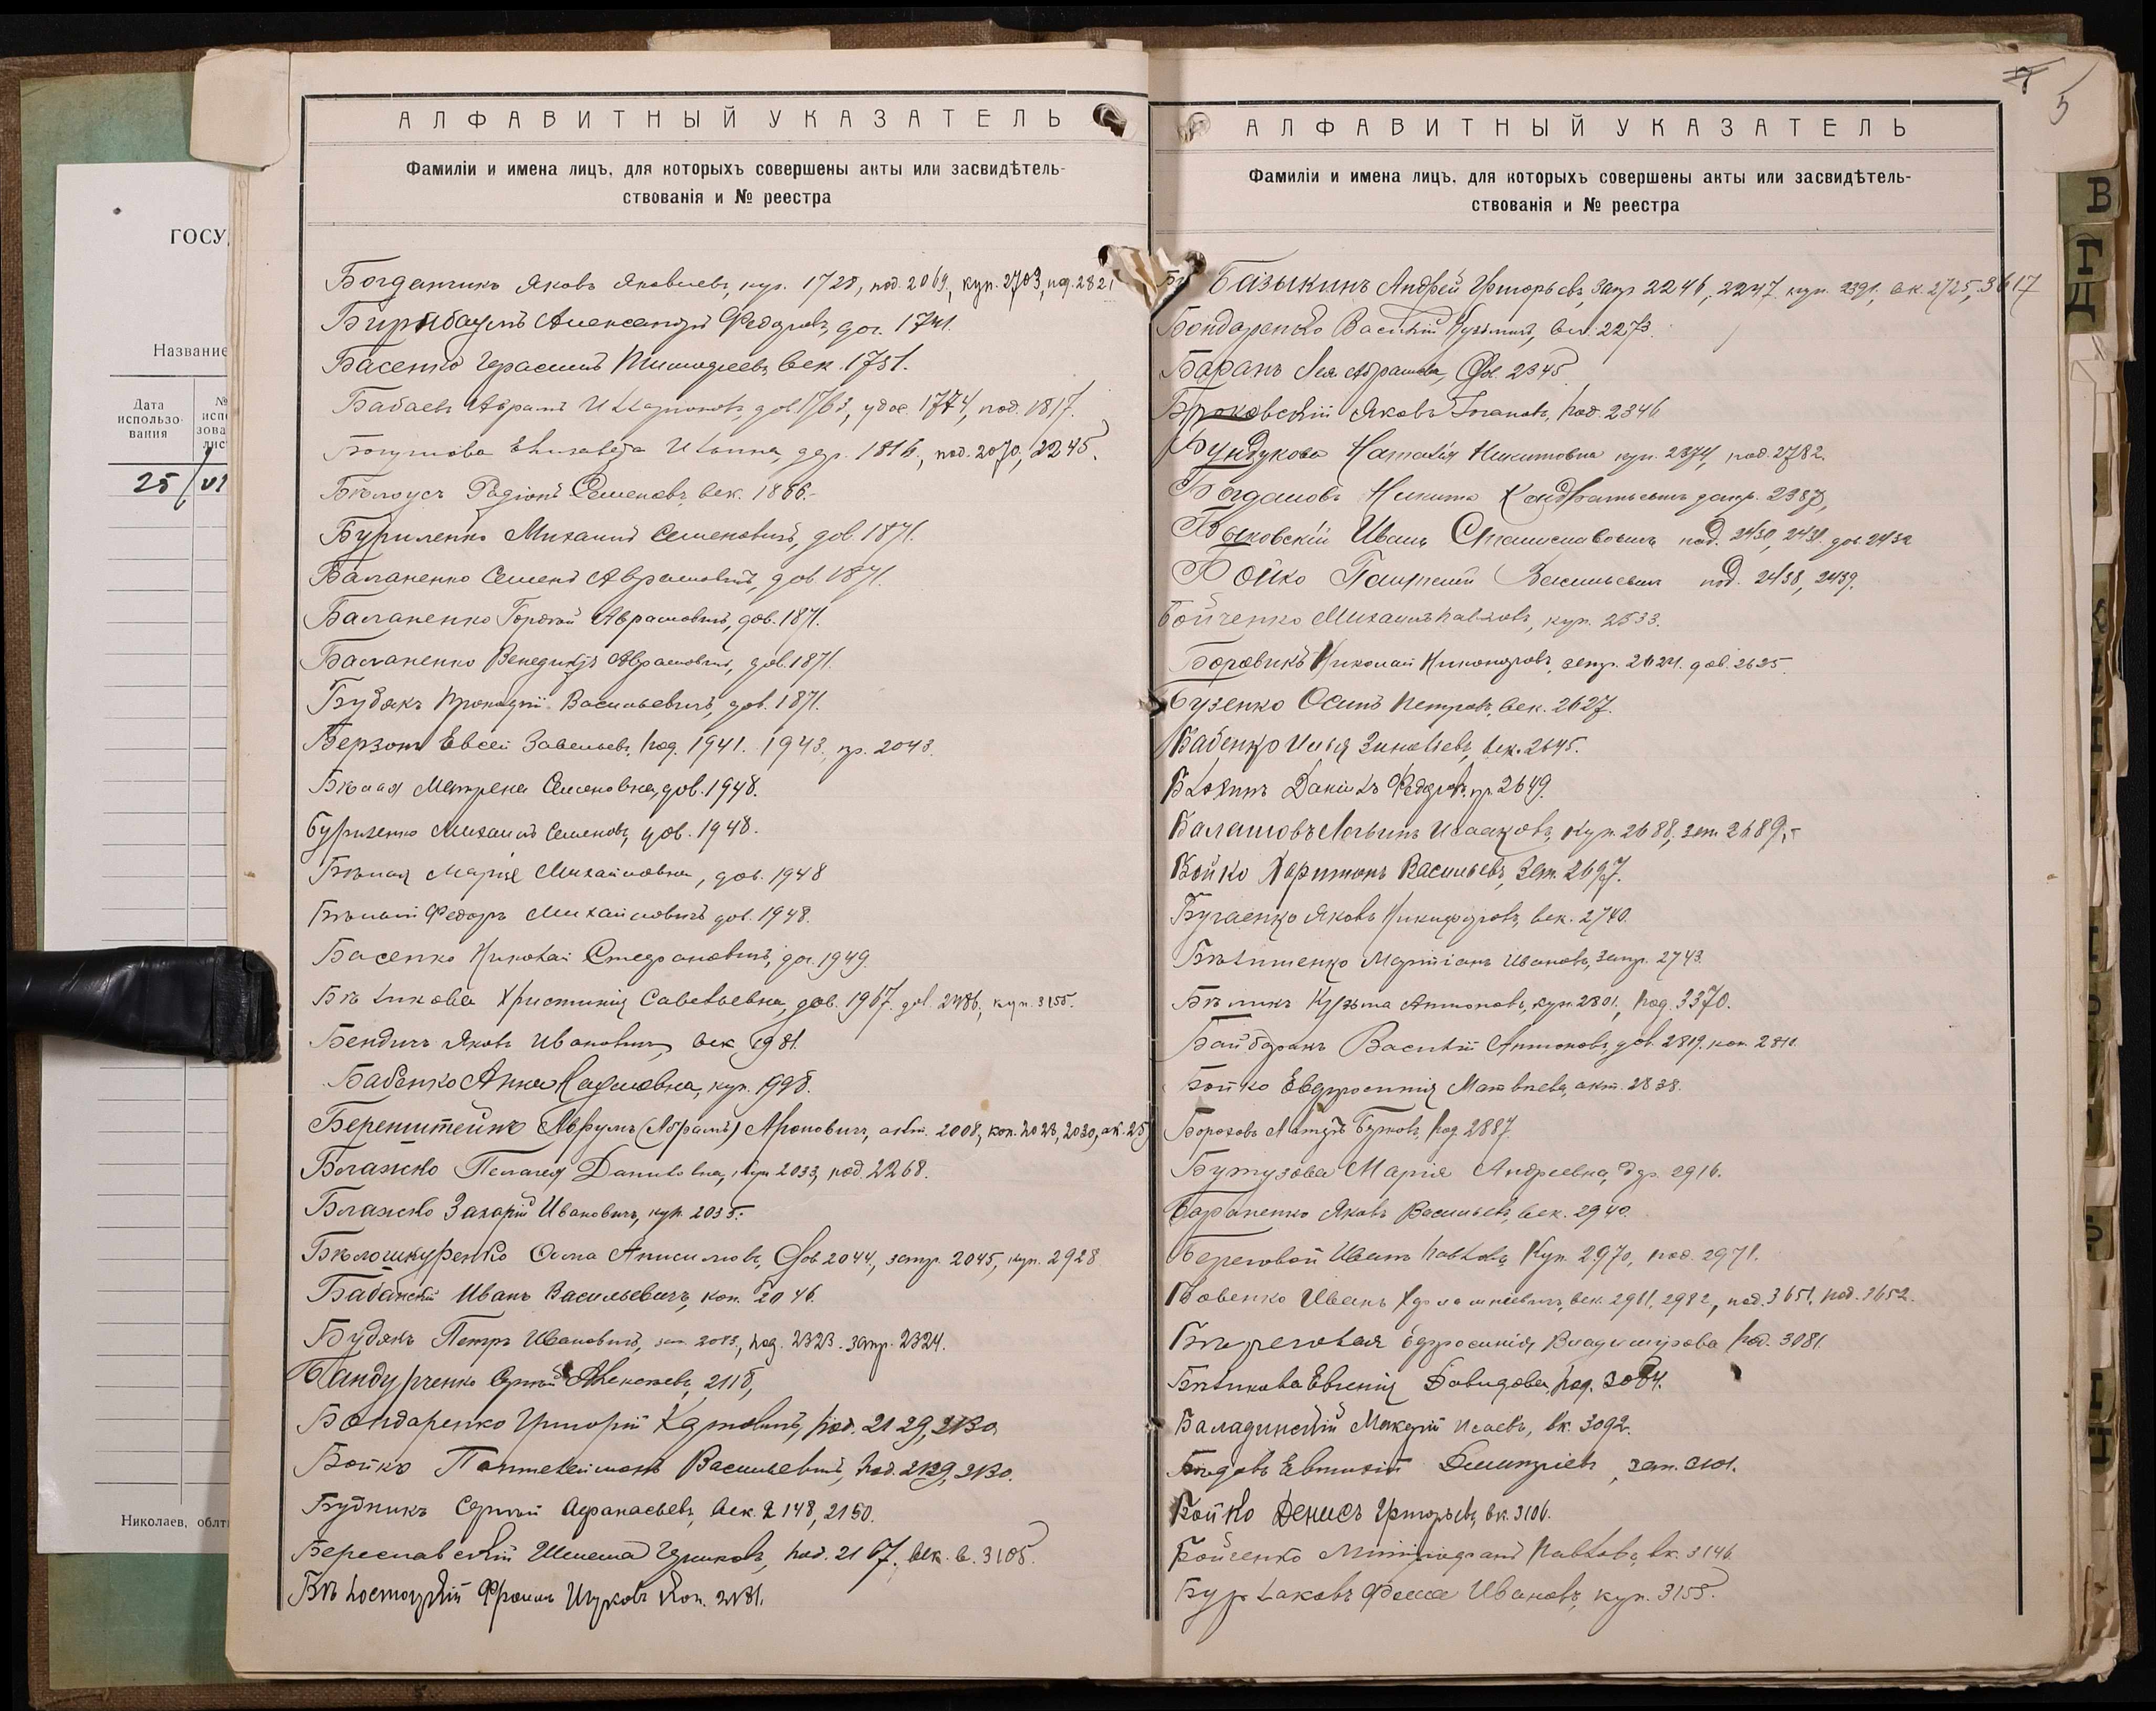 ГОСУ
Название
Дата
использо-
вания
№
25
VI
Николаев, облт
АЛФАВИТНЫЙ УКАЗАТЕЛЬ
Фамиліи и имена лицъ, для которыхъ совершены акты или засвидѣтель-
ствованія и № реестра
Яковъ Яковлевъ, куп. 1728, под. 2069, куп. 2703, под. 2821
Александръ Федоровъ, дог. 1741.
Басенко Герасимъ Тимофеевъ век. 1751.
Бабаевъ дов. 1763, удос. 1774, под. 1817.
Елизавета дар. 1816, под. 2070, 2245.
Бѣлоусъ Родіонъ Семеновъ, век. 1866.
Буриленко Михаилъ Семеновичъ, дов. 1871.
Баланенко Семенъ Аврамовичъ, дов. 1871.
Баланенко Гордѣй Аврамовичъ, дов. 1871.
Баланенко Венедиктъ Аврамовичъ, дов. 1871.
Будякъ Прокофій Васильевичъ, дов. 1871.
Берзонъ Евсей Савельевъ, под. 1941. 1943, пр. 2043.
Бѣлая Матрена Семеновна, дов. 1948.
Буриленко Михаилъ Семеновъ, дов. 1948.
Бѣлая Марія Михайловна, дов. 1948
Бѣлый Федоръ Михайловичъ дов. 1948.
Басенко Николай Стефановичъ, дог. 1949.
Бѣликова Христинія Савельевна, дов. 1967. дов. 2486, куп. 3155.
Бендичъ Яковъ Ивановичъ, век 1981.
Бабенко Анна Наумовна, куп. 1998.
Беренштейнъ Аврумъ (Абрамъ) Ароновичъ, акт. 2008, коп. 2023, 2030, ак. 25
Блажко Пелагея Даниловна, куп 2033, под. 2268.
Блажко Захарій Ивановичъ, куп. 2035.
Бѣлошкуренко Фома Анисимовъ, дов 2044, запр. 2045, куп. 2928
Бабанскій Иванъ Васильевичъ, коп. 2046
Будякъ Петръ Ивановичъ, 2083, под. 2323. запр. 2324.
Бандурченко Сергѣй Алексѣевъ, 2118,
Бондаренко Григорій Карповичъ, под. 2129, 2130
Бойко Пантелеймонъ Васильевичъ, под. 2129, 2130.
Будникъ Сергѣй Афанасьевъ, век. 2148, 2150.
Береславскій Шлема под. 2167, век. в. 3105.
Бѣлостоцкій Фроимъ Ицковъ коп. 2181.
7
5
АЛФАВИТНЫЙ УКАЗАТЕЛЬ
Фамиліи и имена лицъ, для которыхъ совершены акты или засвидѣтель-
ствованія и № реестра
Базыкинъ Андрей Григорьевъ, запр 2246, 2247. куп. 2391. вк. 2725, 3617
Бондаренко Василій Кузьмичъ, 2273.
Баранъ Лея Абрамова, дов. 2345
Яковъ под. 2346
Бундукова Наталія Никитовна куп. 2374, под. 2782.
Богдановъ Никита Кондратьевичъ запр. 2387,
Быковскій Иванъ Станиславовичъ под. 2430, 2431. дов. 2432
Бойко Васильевичъ под. 2438, 2439.
Бойченко Михаилъ Павловъ, куп. 2533.
Боровикъ Николай Никоноровъ, запр. 2624. дов. 2625.
Бузенко Осипъ Петровъ, век. 2627.
Бабенко Илья Зиновьевъ, век. 2645.
Даніилъ Федоровъ, пр. 2649.
Балашовъ Исааковъ, куп. 2688, зап. 2689.
Бойко Харитонъ Васильевъ, зап. 2697.
Бугаенко Яковъ Никифоровъ, век. 2740.
Мартіанъ Ивановъ, запр. 2743.
Бѣликъ Кузьма Антоновъ, куп. 2801, под. 3370.
Байбаракъ Василій Антоновъ, дов. 2819. коп.
Бойко Евфросинія Матвѣева, акт. 2838.
под. 2887.
Бутузова Марія Андреевна, дар. 2916.
Бараненко Яковъ Васильевъ, век. 2940.
Береговой Иванъ Павловъ, куп. 2970, под. 2971.
Бовенко Иванъ век. 2911, 2982, под. 3651, под. 3652.
Береговая Ефросинія Владимірова под. 3081.
Бѣликова Евгенія Давидова, под. 3084.
Баладинскій Макарій Исаевъ, вк. 3092.
Евтихій Дмитріевъ, зап. 3101.
Бойко Денисъ Григорьевъ, вк. 3106.
Бойченко Митрофанъ Павловъ, вк. 3146
Бурлаковъ Фома Ивановъ, куп. 3155.
В
Г
Д